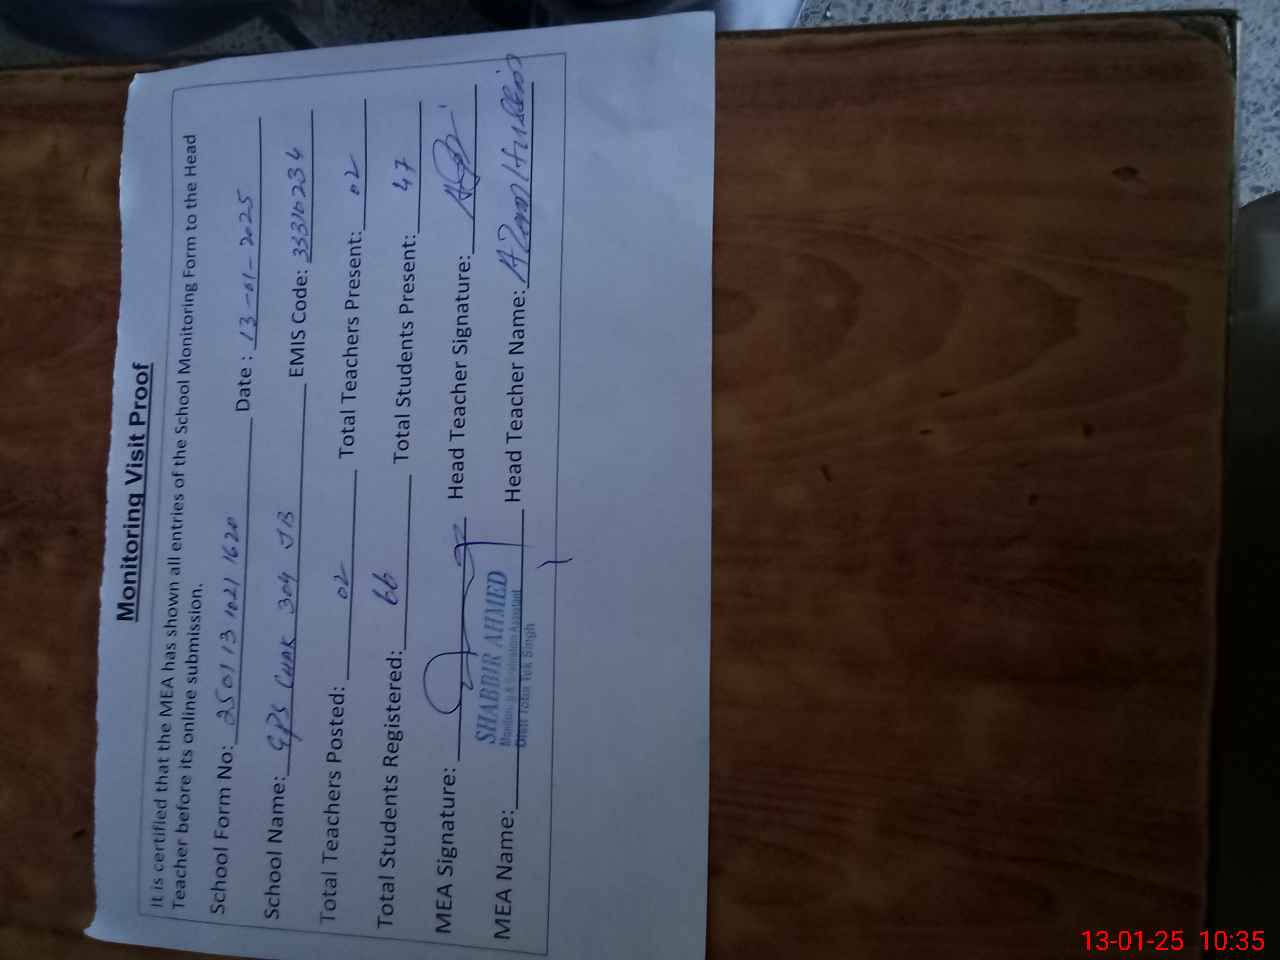 Monitoring Visit Proof
It is certified that the MEA has shown all entries of the School Monitoring Form to the Head
Teacher before its online submission.
School Form No: 2501 13 1021 1620 Date : 13-01-2025
School Name: GPS Chak 304 JB EMIS Code: 33310234
Total Teachers Posted: 02 Total Teachers Present: 02
Total Students Registered: 66 Total Students Present: 47
MEA Signature: Head Teacher Signature:
SHABBIR AHMED
Monitoring & Evaluation Assistant
Distt Toba Tek Singh
MEA Name: Head Teacher Name:
13-01-25 10:35